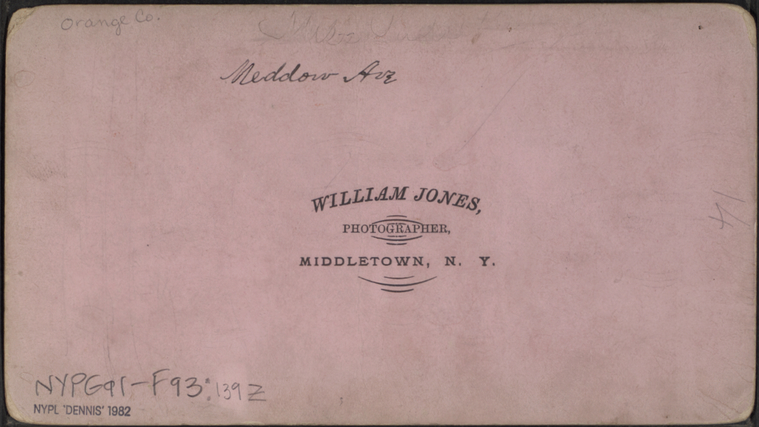 Orange Co.
Meddow Ave
WILLIAM JONES,
PHOTOGRAPHER,
MIDDLETOWN, N. Y.
14
NYPG91-F93:139 Z
NYPL 'DENNIS' 1982